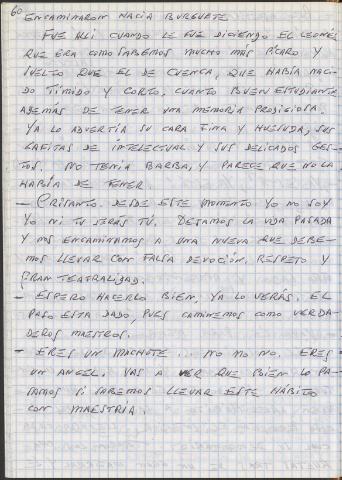 60
ENCAMINARON HACIA BURGUETE
FUE ALLI CUANDO LE FUE DICIENDO EL LEONÉS
QUE ERA COMO SABEMOS MUCHO MÁS PÍCARO Y
SUELTO QUE EL DE CUENCA, QUE HABÍA NACI-
DO TÍMIDO Y CORTO, CUANTO BUEN ESTUDIANTE
ADEMÁS DE TENER UNA MEMORIA PRODIGIOSA.
YA LO ADVERTÍA SU CARA FINA Y HUESUDA, SUS
GAFITAS DE INTELECTUAL Y SUS DELICADOS GES-
TOS. NO TENÍA BARBA, Y PARECE QUE NO LA
HABÍA DE TENER.
- CRISANTO. DESDE ESTE MOMENTO YO NO SOY
YO NI TU SERÁS TÚ. DEJAMOS LA VIDA PASADA
Y NOS ENCAMINAMOS A UNA NUEVA QUE DEBE-
MOS LLEVAR CON FALSA DEVOCIÓN, RESPETO Y
GRAN TEATRALIDAD.
- ESPERO HACERLO BIEN, YA LO VERÁS. EL
PASO ESTA DADO, PUES CAMINEMOS COMO VERDA-
DEROS MAESTROS.
- ERES UN MACHOTE... NO NO NO. ERES
UN ANGEL. VAS A VER QUE BIEN LO PA-
SAMOS SI SABEMOS LLEVAR ESTE HÁBITO
CON MAESTRÍA.